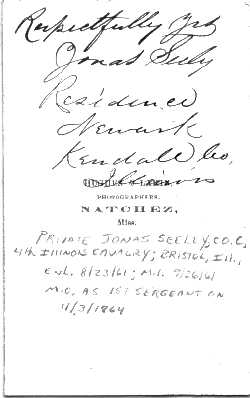 Respectfully Yrs
Jonas Seely
Residence
Newark
Kendall Co.
Illinois
PHOTOGRAPHERS.
NATCHEZ,
Miss.
PRIVATE JONAS SEELLY, CO. C,
4th ILLINOIS CAVALRY; BRISTOL, Ill.,
ENL. 8/23/61; M.I. 9/26/61
M.O. AS 1ST SERGEANT ON
11/3/1864